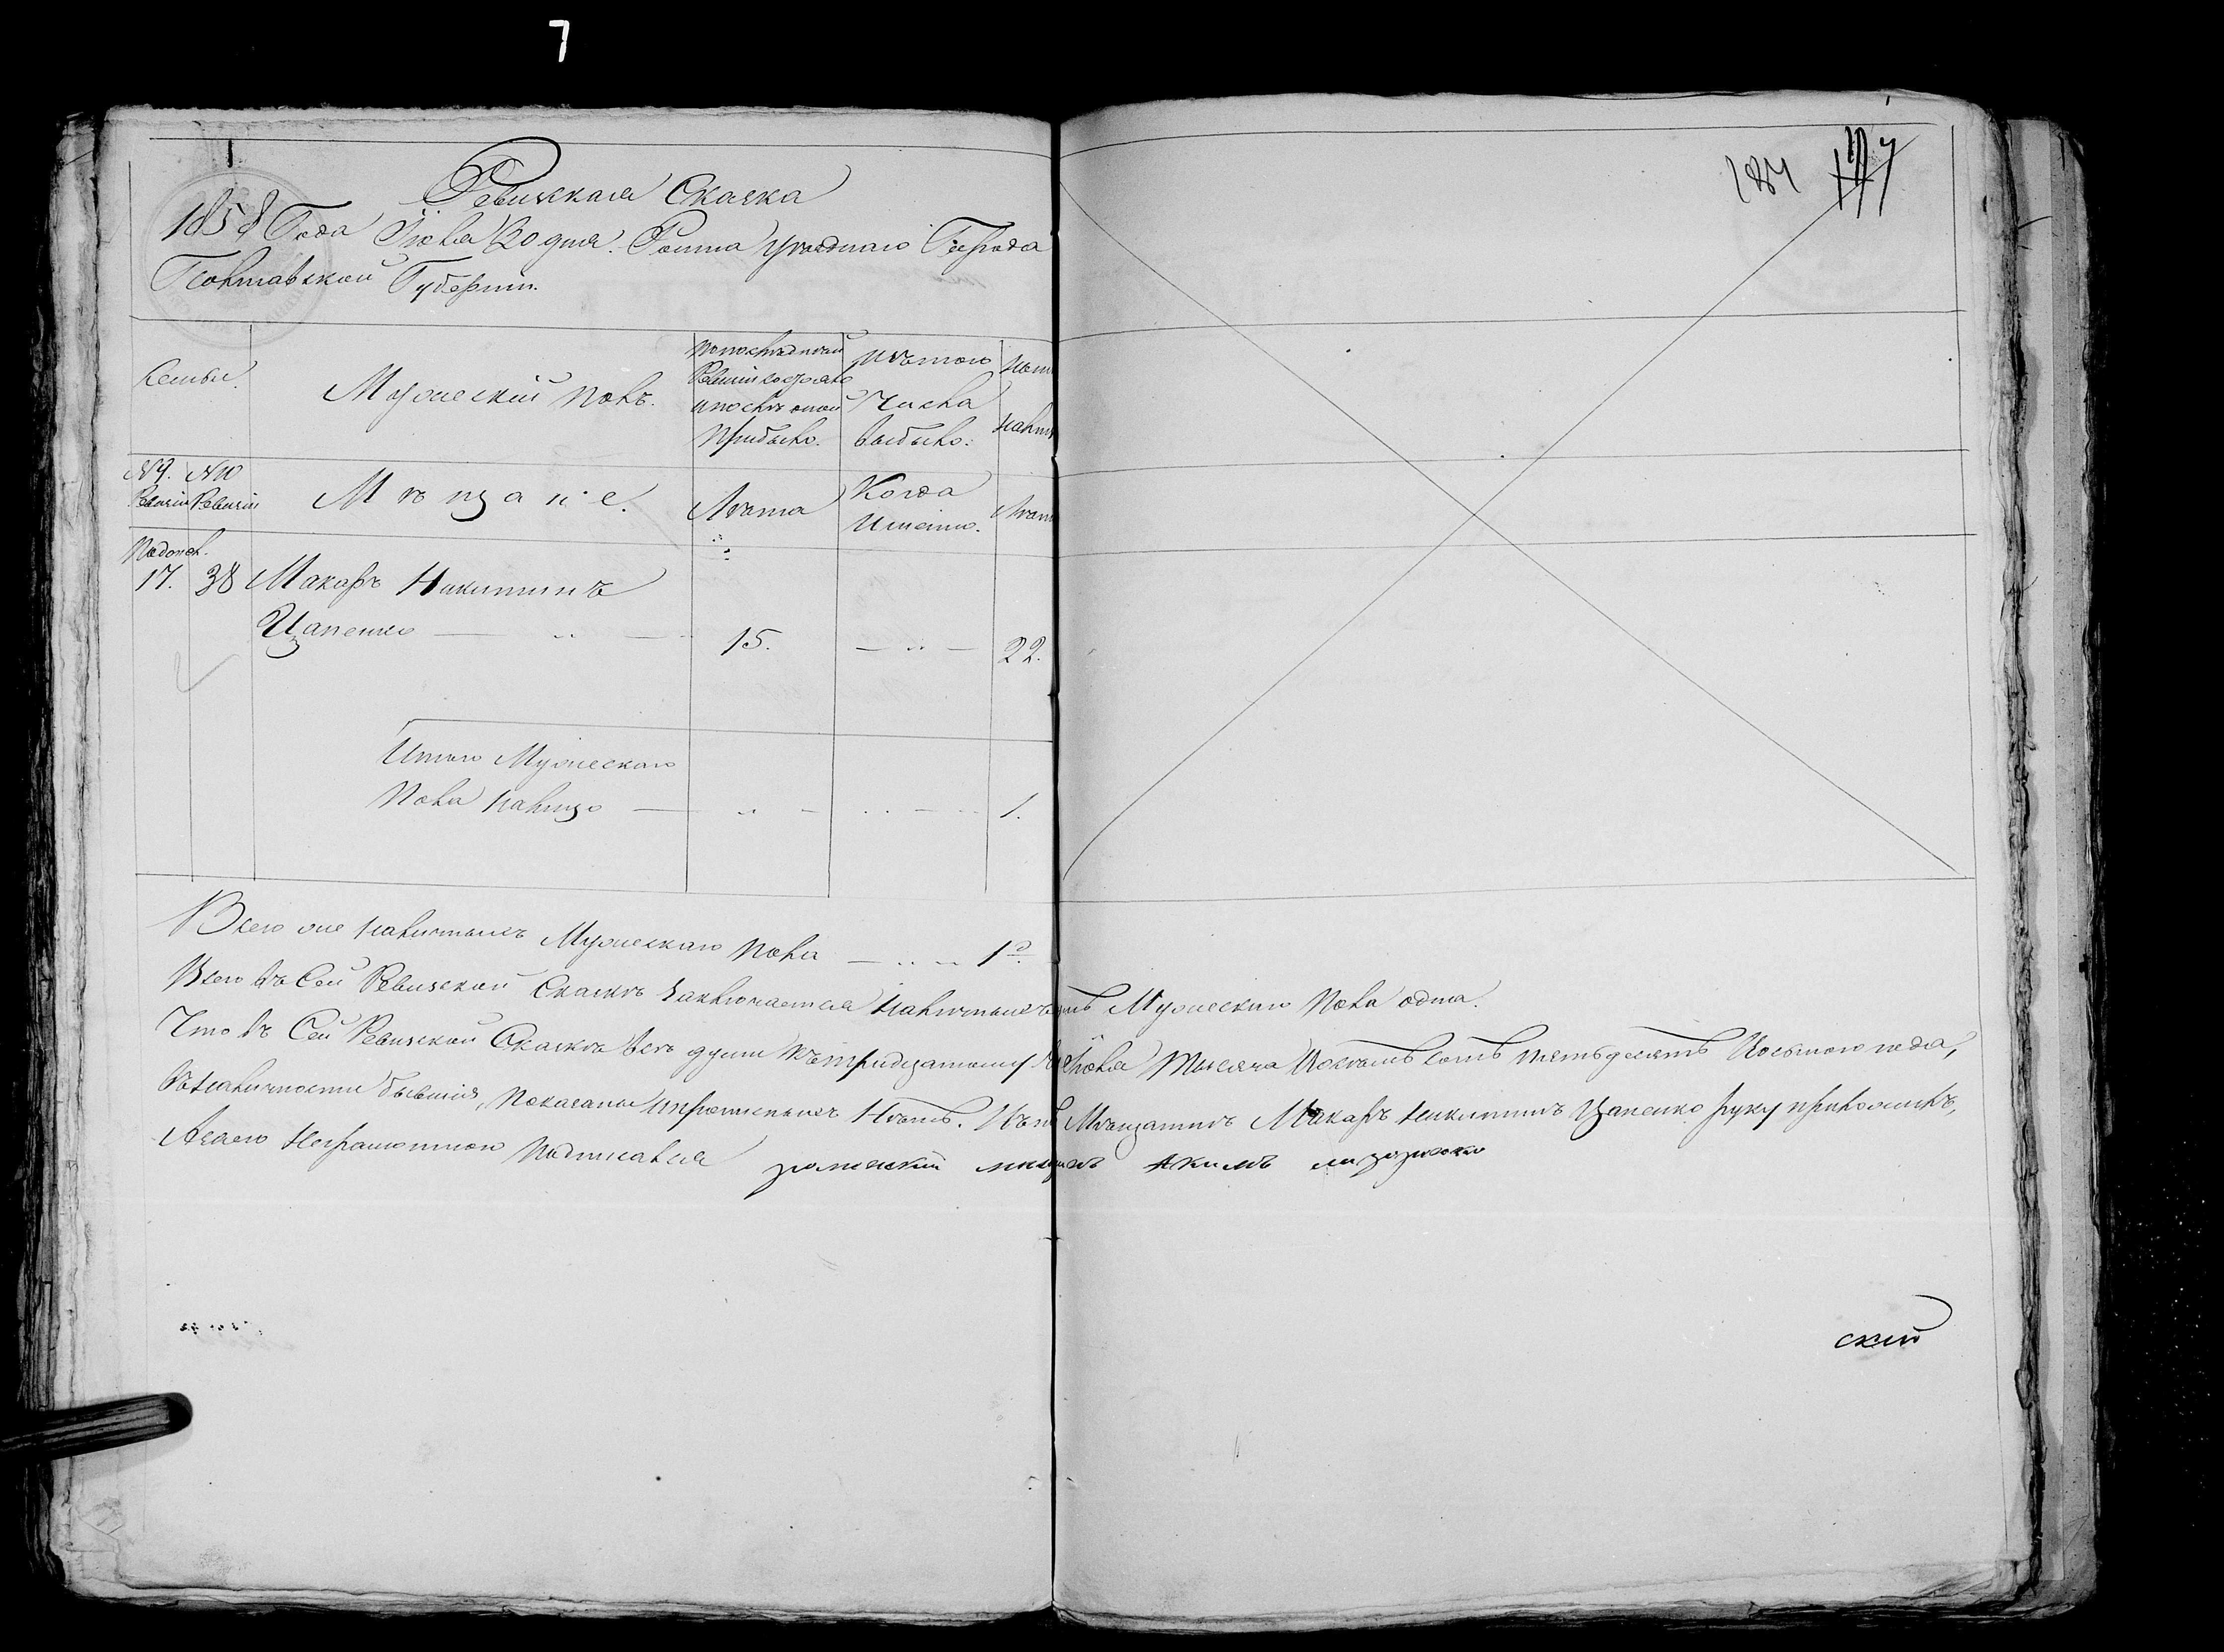 7
184
Ревизская Сказка
1858 Года Июля 20 дня. Ромна уѣзднаго Города
Полтавской Губерніи.
Семьи. Мужескій полъ. По послѣдней Ревизіи состояло и послѣ оной прибыло. Изъ того Числа выбыло. налиц
№ 9. Ревизіи № 10 Ревизіи Мѣщане. Лѣта Когда Именно. Лѣта
По допол.
17. 38 Макаръ Никитинъ
Цапенко 15. 22.
Итого Мужескаго
Пола налицо 1.
Всего же наличныхъ Мужескаго пола 1
Всего въ Сей Ревизской Сказкѣ заключается наличныхъ Мужескаго пола одна.
Что въ Сей Ревизской Сказкѣ всѣ души къ тридцатому Июля тысяча восемьсотъ пятьдесятъ восьмого года,
въ наличности бывшія, показаны и прописныхъ Нѣтъ. Мѣщанинъ Макаръ Никитинъ Цапенко руку приложилъ,
А за его неграмотного подписался роменский мещанинъ Акимъ
ский